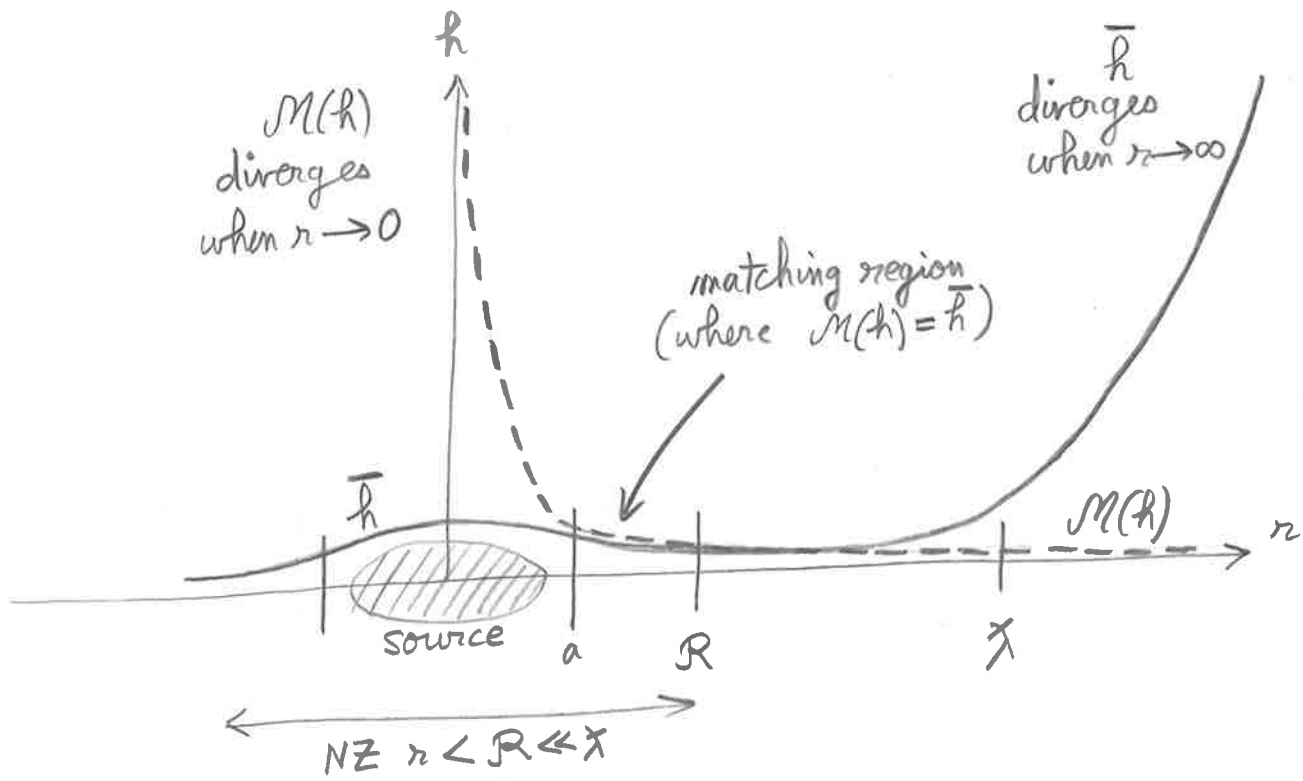 h
M(h)
diverges
when r→0
h̅
diverges
when r→∞
matching region
(where M(h) = h̅)
h̅
M(h)
r
source
a
R
ƛ
NZ r < R ≪ ƛ